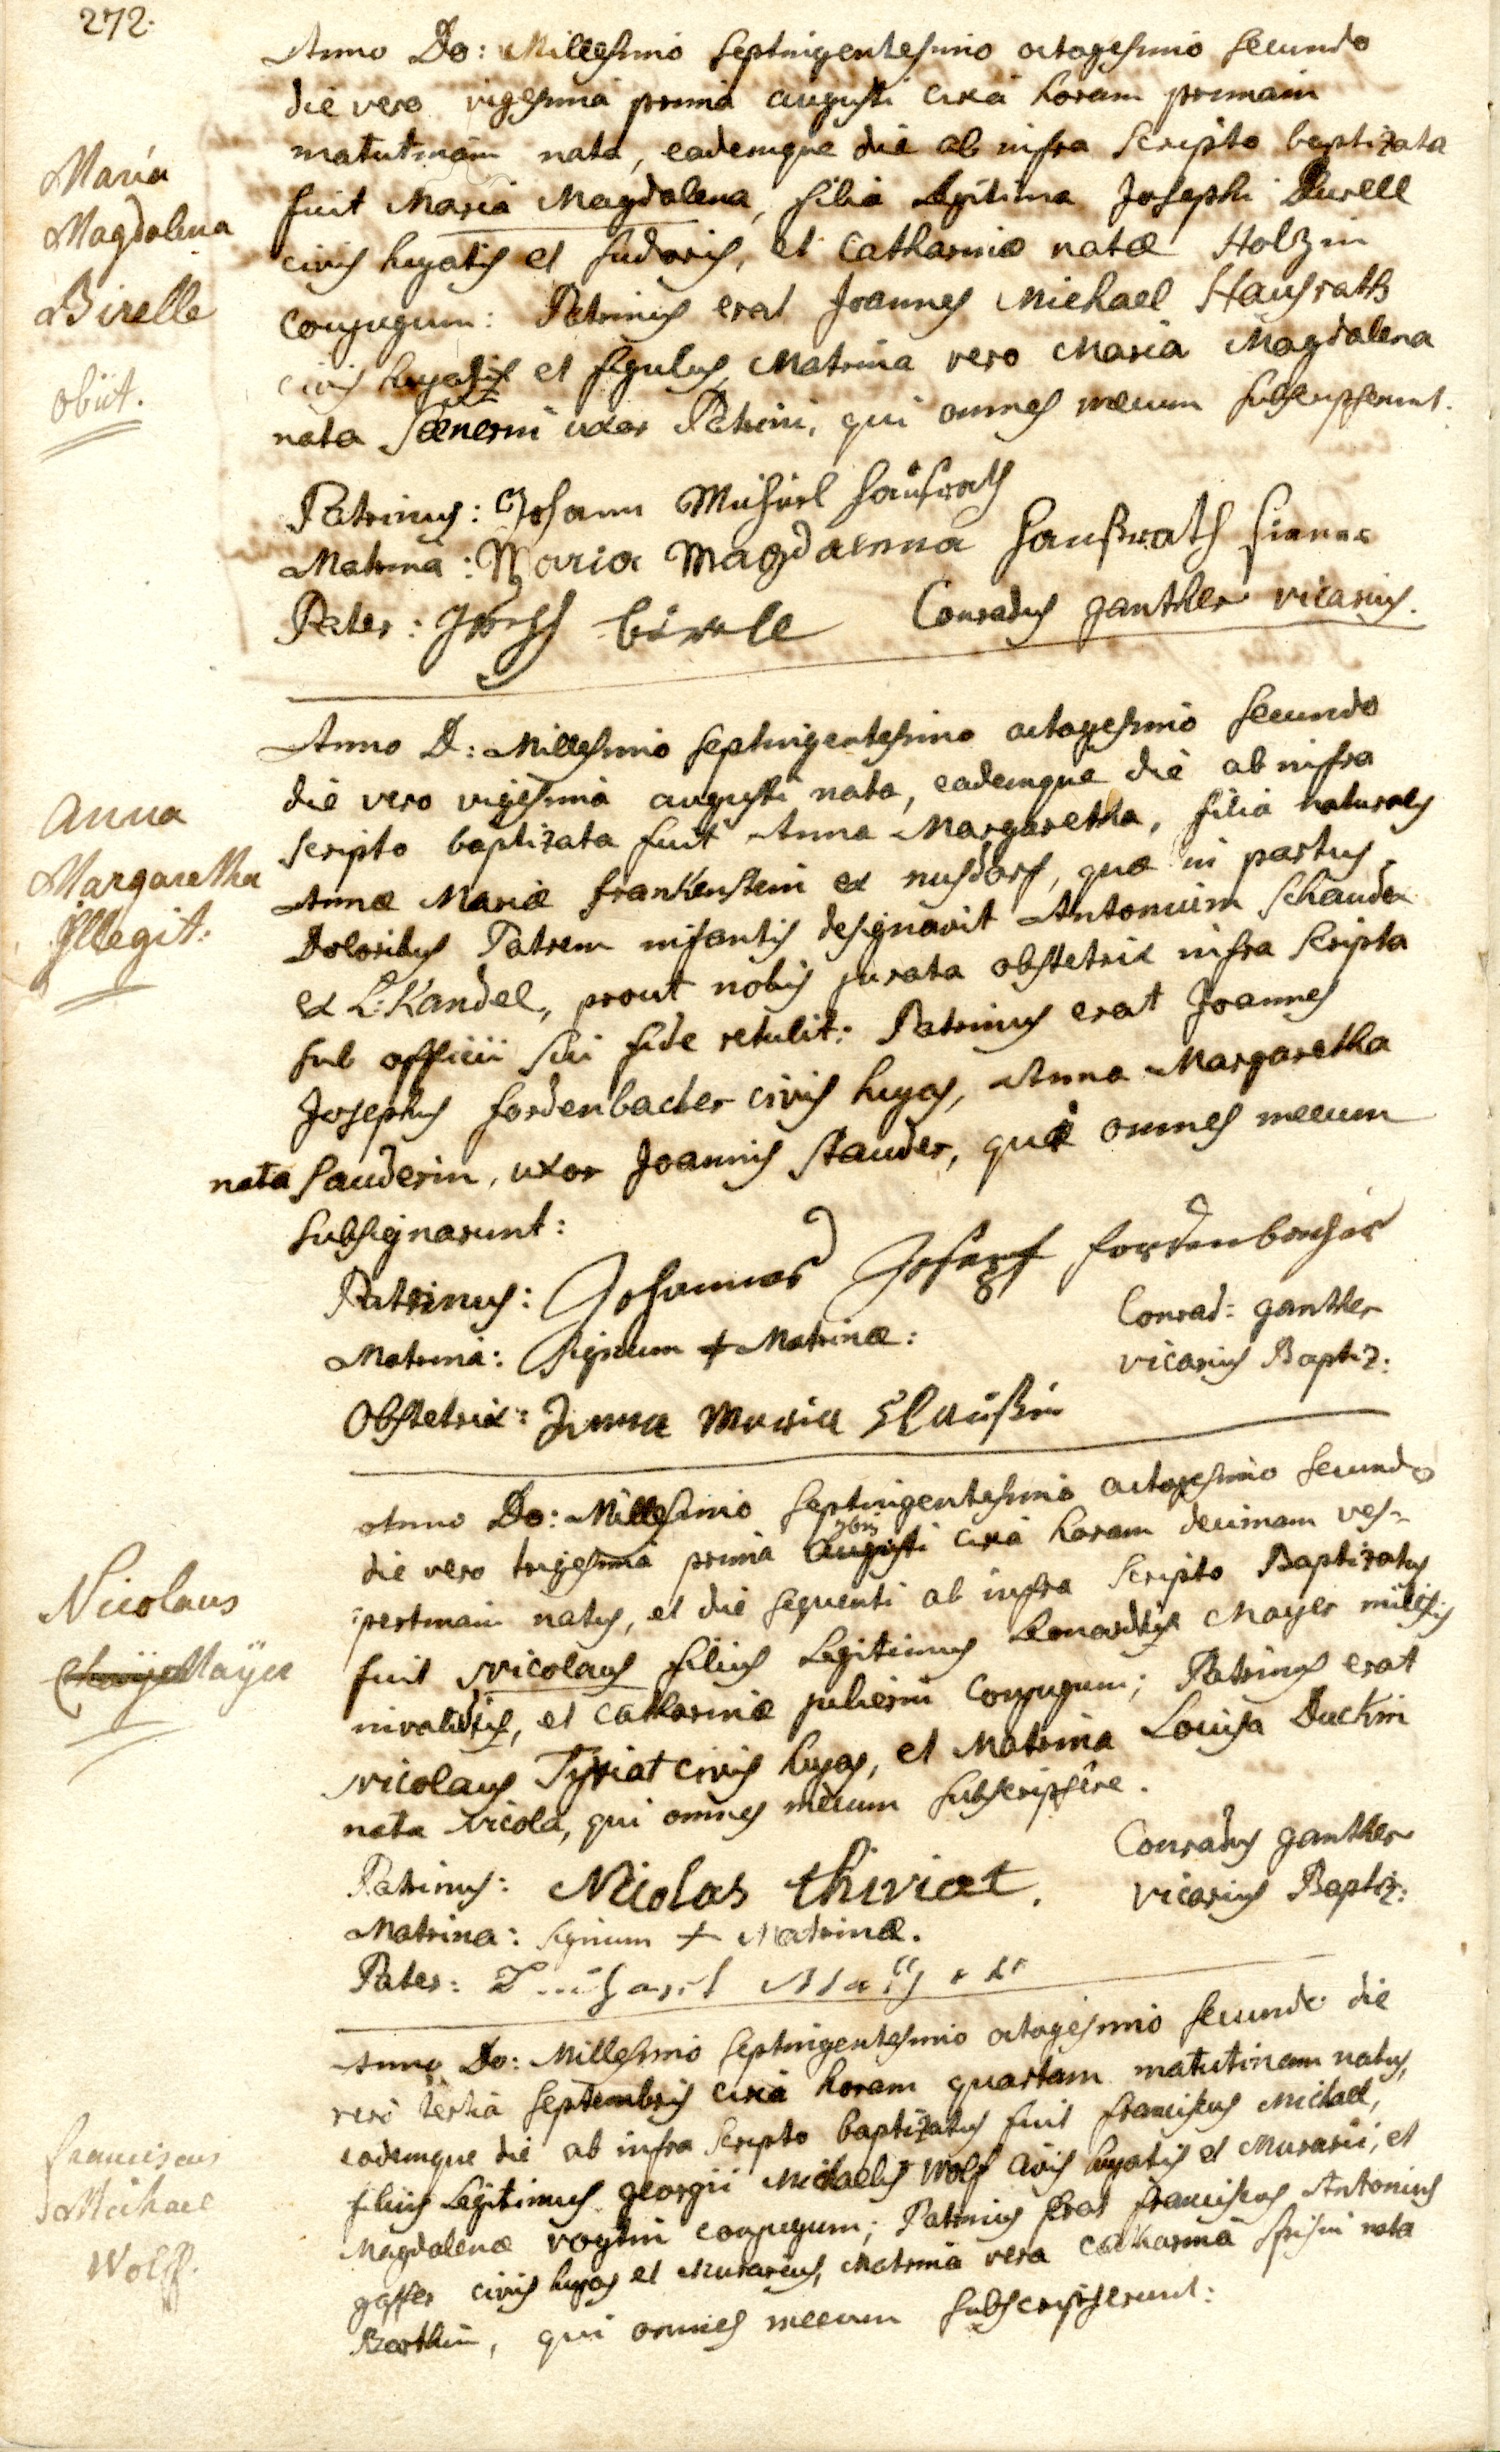 272.
Maria
Magdalena
Birelle
obiit.
Anno Do: Millesimo septingentesimo octogesimo secundo
die vero vigesima prima augusti circa horam primam
matutinam nata, eademque die ab infra scripto baptizata
fuit Maria Magdalena, filia legitima Josephi Burell
civis hujatis et sudoris, et Catharinæ natæ Holzin
conjugum: Patrinus erat Joannes Michael Hausrath
civis hujatis et figulus, Matrina vero Maria Magdalena
nata uxor Patrini, qui omnes mecum subscripserunt.
Patrinus: Johann Michael Haußrath
Matrina: Maria Magdalena Haußrath
Pater: Joseph birelle Conradus ganther vicarius.
Anna
Margaretha
illegit:
Anno D: Millesimo septingentesimo octogesimo secundo
die vero vigesima augusti nata, eademque die ab infra
scripto baptizata fuit Anna Margaretha, filia naturales
Annæ Mariæ frankenstein ex nusdorf, quæ in partus
Doloribus Patrem infantis designavit Antonium Schauder
ex L: Kandel, prout nobis jurata obstetrix infra scripta
sub officii sui fide retulit: Patrinus erat Joannes
Josephus fordenbacher civis hujas, Anna Margaretha
nata sauderin, uxor Joannis stauder, qui omnes mecum
subsignarunt:
Patrinus: Johannes Josepf fordenbacher
Matrina: signum + Matrinæ: Conrad: ganther
vicarius Baptiz:
Obstetrix: Anna Maria Claußin
Nicolaus
Mayer
Anno Do: Millesimo septingentesimo octogesimo secundo
die vero trigesima prima augusti circa horam decimam ves-
pertinam natus, et die sequenti ab infra scripto Baptizatus
fuit Nicolaus filius Legitimus Leonardi Mayer militis
invalidis, et Catharinæ julierin conjugum; Patrinus erat
Nicolaus Tyriat civis hujas, et Matrina Louisa Duckin
nata Nicola, qui omnes mecum subscripsere.
Patrinus: Nicolas thiriat. Conradus ganther
Matrina: signum + Matrinæ. vicarius Baptiz:
Pater:
Franciscus
Michael
Wolff.
Anno Do: Millesimo septingentesimo octogesimo secundo die
vero tertia septembris circa horam quartam matutinam natus,
eademque die ab infra scripto baptizatus fuit franciscus Michael,
filius Legitimus georgii Michaelis Wolf civis hujatis et Murarii, et
Magdalenæ vogtin conjugum; Patrinus erat franciscus Antonius
gaffer civis hujas et Murarius, Matrina vero Catharina nata
Barthin, qui omnes mecum subscripserunt: